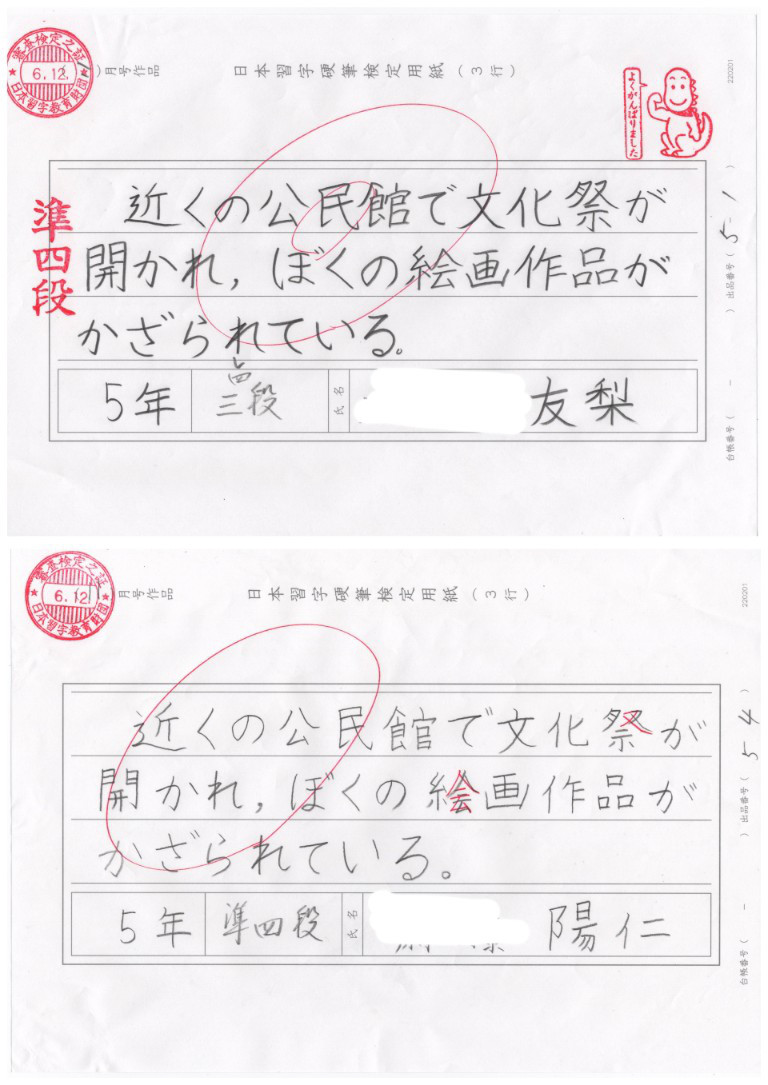 審査検定之証
6.12.
日本習字教育財団
月号作品
日本習字硬筆検定用紙(3行)
よくがんばりました
220201
準四段
近くの公民館で文化祭が
開かれ,ぼくの絵画作品が
かざられている。
5年
三段
氏名
友梨
出品番号( 5-1 )
台帳番号( - )
審査検定之証
6.12
日本習字教育財団
月号作品
日本習字硬筆検定用紙(3行)
220201
近くの公民館で文化祭が
開かれ,ぼくの絵画作品が
かざられている。
5年
準四段
氏名
陽仁
出品番号( 5 4 )
台帳番号( - )